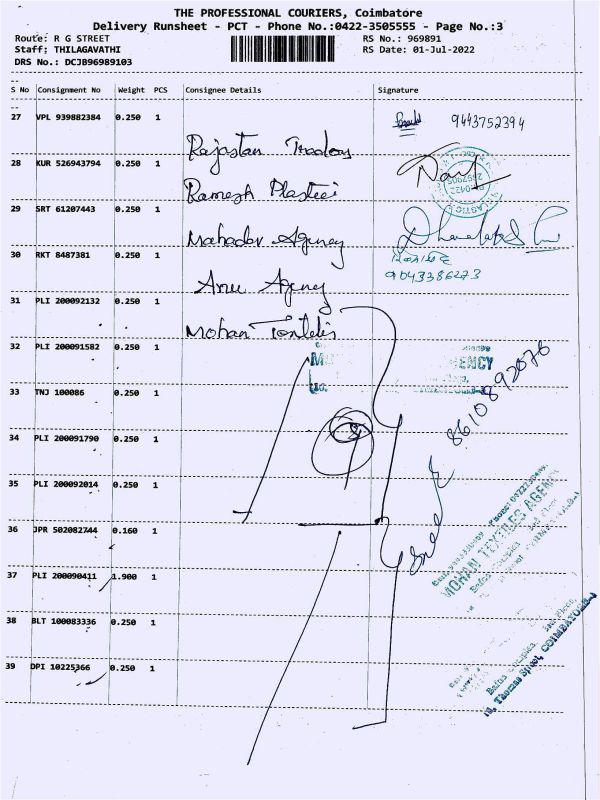 THE PROFESSIONAL COURIERS, Coimbatore
Delivery Runsheet - PCT - Phone No.:0422-3505555 - Page No.:3
Route: R G STREET
RS No.: 969891
Staff: THILAGAVATHI
RS Date: 01-Jul-2022
DRS No.: DCJB96989103
S No Consignment No Weight PCS Consignee Details Signature
27 VPL 939882384 0.250 1
9443752394
Rajastan Traders
28 KUR 526943794 0.250 1
Ramesh
29 SRT 61207443 0.250 1
Mahadev Agency
30 RKT 8487381 0.250 1
9043386273
Anu Agency
31 PLI 200092132 0.250 1
Mohan
32 PLI 200091582 0.250 1
ENCY
8610892076
33 TNJ 100086 0.250 1
34 PLI 200091790 0.250 1
35 PLI 200092014 0.250 1
36 JPR 502082744 0.160 1
MOHAN TEXTILES AGENCY
37 PLI 200090411 1.900 1
38 BLT 100083336 0.250 1
39 DPI 10225366 0.250 1
Thomas Street, COIMBATORE